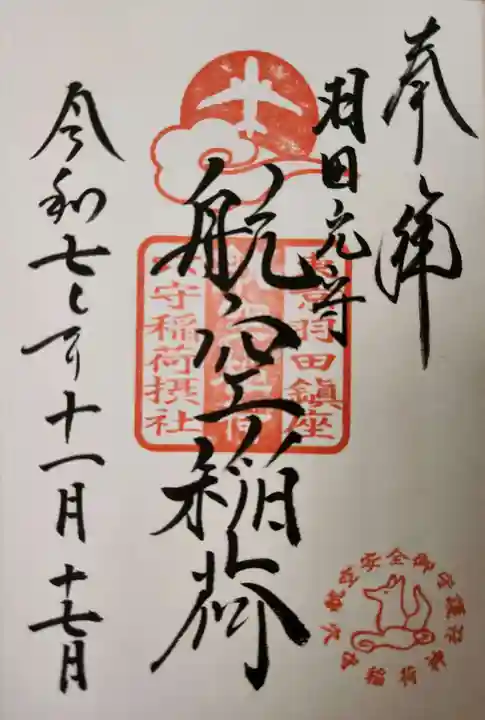 奉拝
羽田穴守
航空稲荷
令和七年十一月十七日
東京羽田鎮座
航空稲荷
穴守稲荷摂社